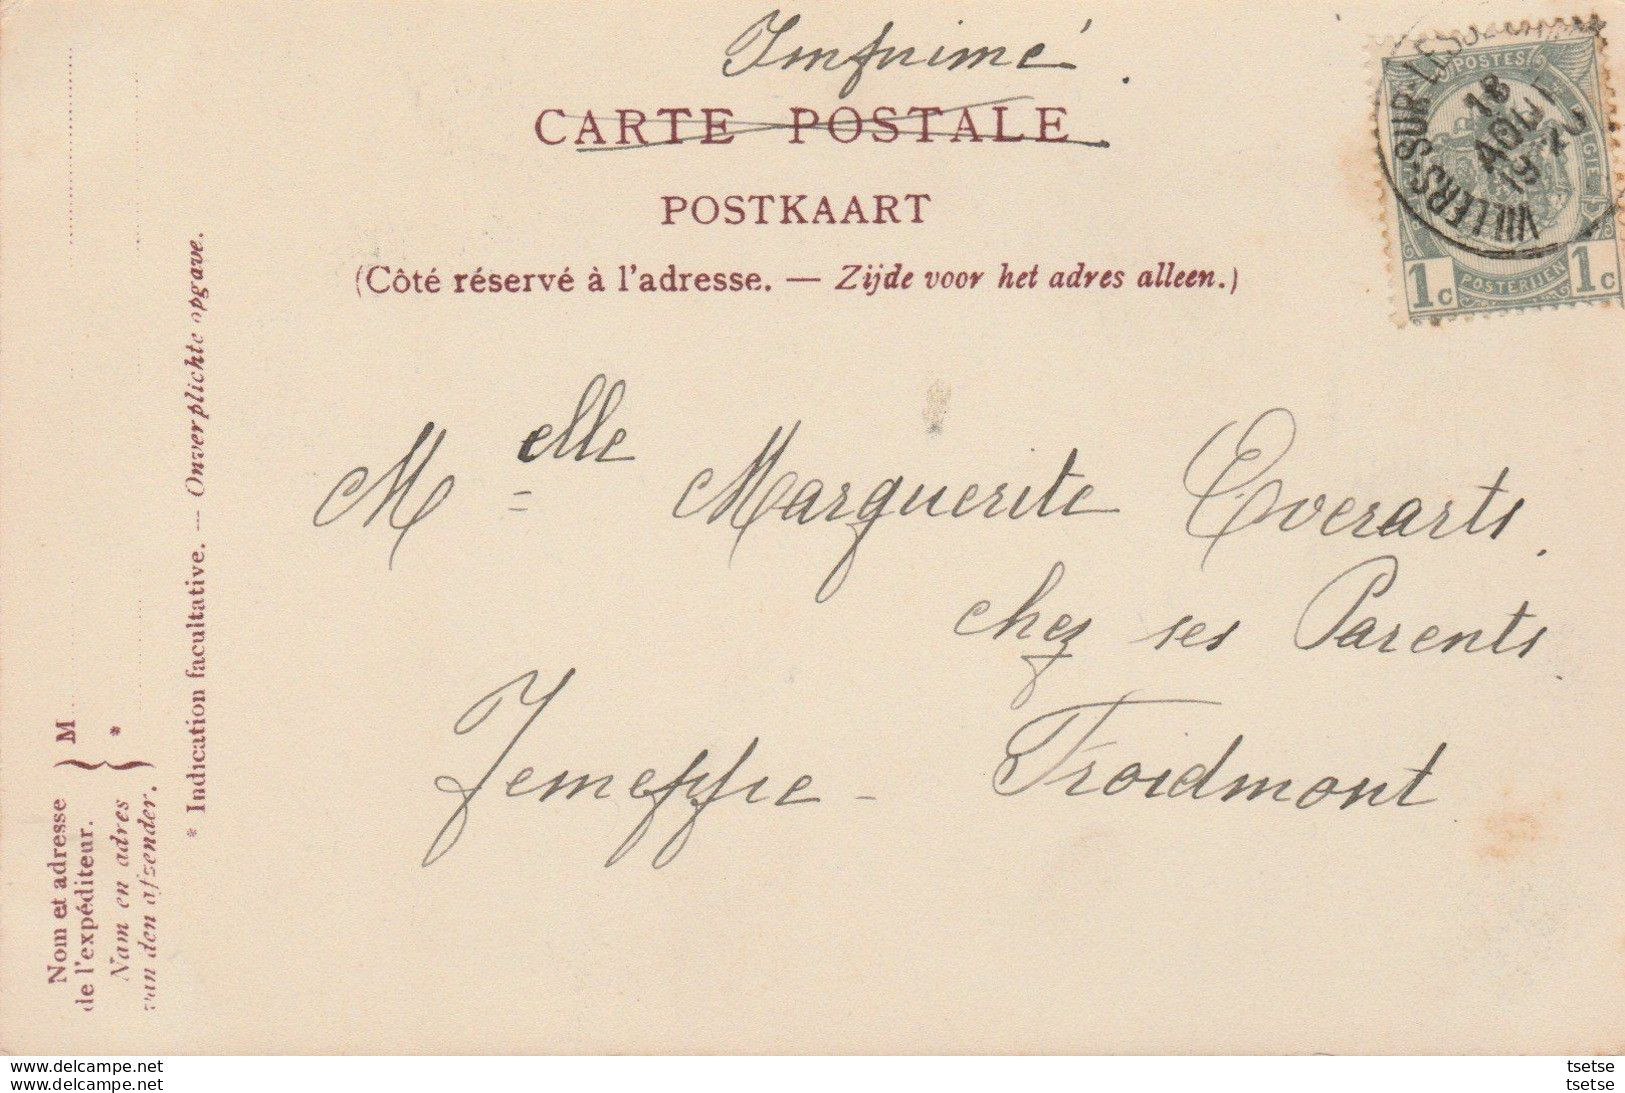 Imprimé.
CARTE POSTALE
POSTKAART
(Côté réservé à l'adresse. — Zijde voor het adres alleen.)
POSTES
1c POSTERIJEN 1c
VILLERS-SUR-LES
18 AOU
Melle Marguerite Everarts,
chez ses Parents
Jemeppe - Froidmont
M
*
Nom et adresse
de l'expéditeur.
Nam en adres
van den afzender.
* Indication facultative. — Onverplichte opgave.
delcampe.net
delcampe.net
tsetse
tsetse